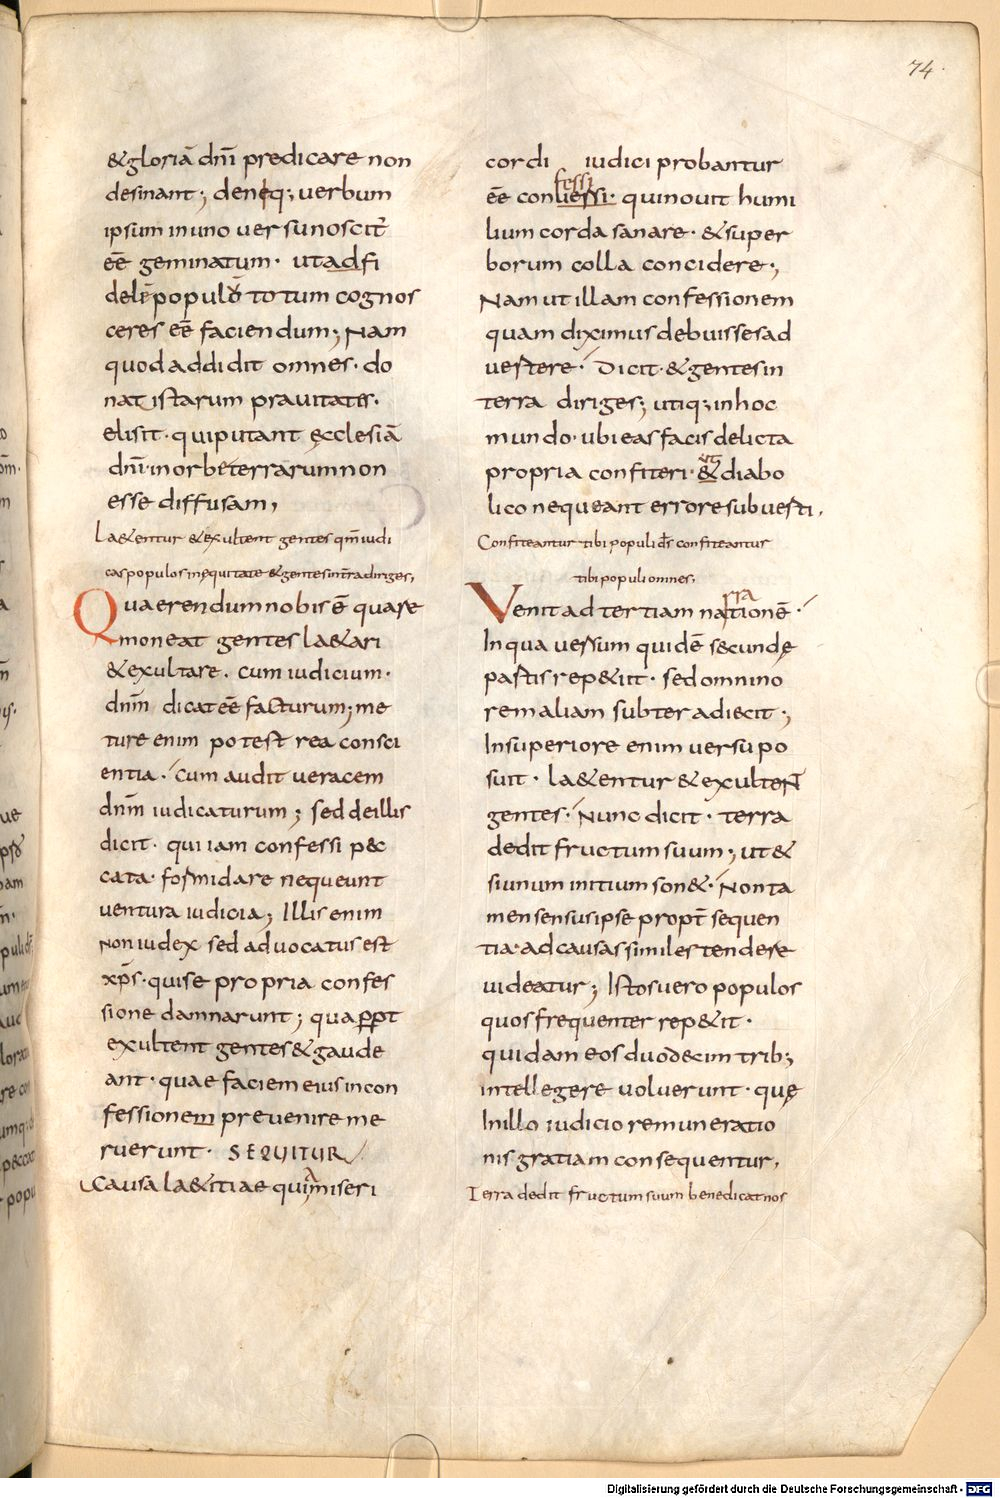 74.
& gloriā dn̄i predicare non
desinant; deniq; verbum
ipsum in uno versu noscit̄
eē̄ geminatum · ut ad fi
delē populū totum cognos
ceres eē̄ faciendum; Nam
quod addidit omnes · do
natistarum pravitatis ·
elisit · qui putant ęcclesiā
dn̄i · in orbe terrarum non
esse diffusam,
La&entur & exultent gentes qm̄ iudi
cas populos in equitate & gentes in tr̄a diriges,
Quaerendum nobis ē quare
moneat gentes la&ari
& exultare. cum iudicium ·
dn̄m dicat eē̄ facturum; me
tu re enim potest rea consci
entia · cum audit veracem
dn̄m iudicaturum; sed de illis
dicit · qui iam confessi pec
cata · formidare nequeunt
ventura iudicia; Illis enim
non iudex sed advocatus est
xp̄s · qui se propria confes
sione damnarunt; qua ꝓꝑt
exultent gentes & gaude
ant · quae faciem eius in con
fessionem prevenire me
ruerunt · SEQUITUR
Causa la&itiae quia miseri
cordi iudici probantur
eē̄ conversi · qui novit humi
fessi
lium corda sanare · & super
borum colla concidere;
Nam ut illam confessionem
quam diximus debuisses ad
vertere · Dicit · & gentes in
terra diriges; utiq; in hoc
mundo · ubi eas facis delicta
propria confiteri · & diabo
ut
lico nequeant errore subverti,
Confiteantur tibi populi ds̄ confiteantur
tibi populi omnes,
Venit ad tertiam nationē ·
rra
In qua versum quidē secundę
partis rep&iit · sed omnino
rem aliam subter adiecit;
In superiore enim versu po
suit · la&entur & exultent
gentes · Nunc dicit · terra
dedit fructum suum; ut &
si unum initium son& · Non ta
men sensus ipse propt̄ sequen
tia · ad causas similes tendere
videatur; Istos vero populos
quos frequenter rep&it ·
quidam eos duodecim trib;
intellegere voluerunt · quę
In illo iudicio remuneratio
nis gratiam consequentur,
Terra dedit fructum suum benedicat nos
Digitalisierung gefördert durch die Deutsche Forschungsgemeinschaft - DFG